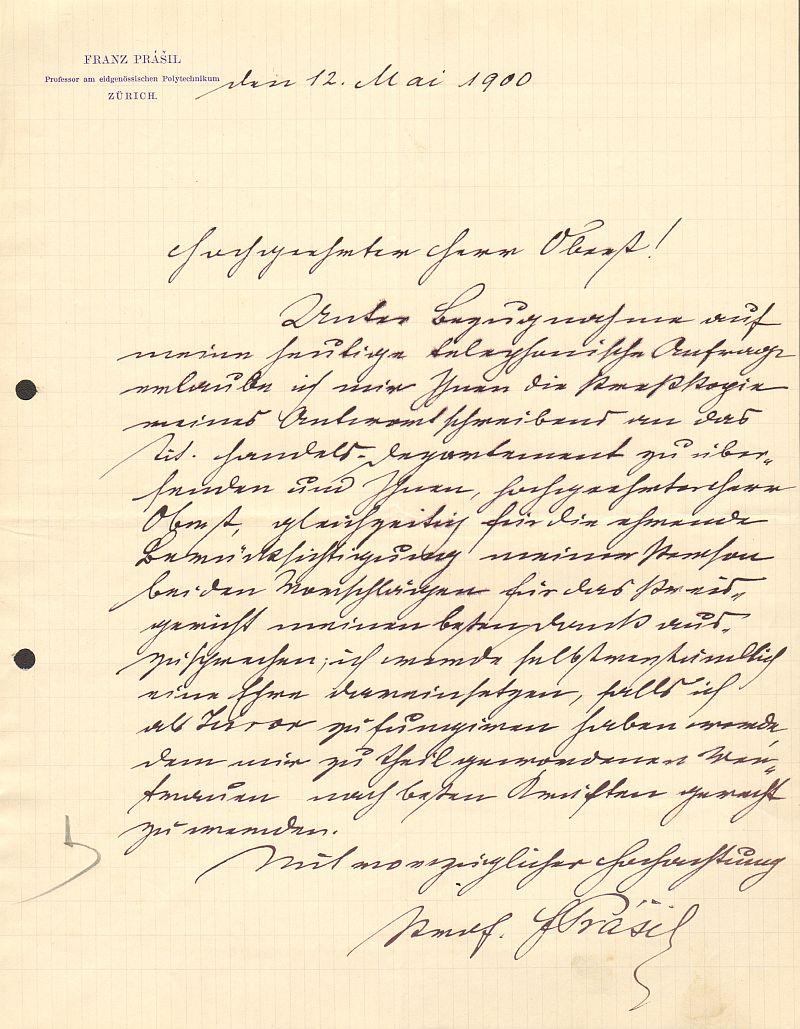 FRANZ PRÁŠIL
Professor am eidgenössischen Polytechnikum
ZÜRICH.
den 12. Mai 1900
Hochgeehrter Herr Oberst!
Unter Bezugnahme auf
meine heutige telephonische Anfrage
erlaube ich mir Ihnen die Preßkopie
meines Antwortschreibens an das
Tit. Handels-Departement zu über-
senden und Ihnen, hochgeehrter Herr
Oberst, gleichzeitig für die ehrende
Berücksichtigung meiner Person
bei den Vorschlägen für das Preis-
gericht meinen besten Dank aus-
zusprechen; ich werde selbstverständlich
eine Ehre dareinsetzen, falls ich
als Juror zu fungiren haben werde,
dem mir zu theil gewordenen Ver-
trauen nach besten Kräften gerecht
zu werden.
Mit vorzüglicher Hochachtung
Prof. F Prášil